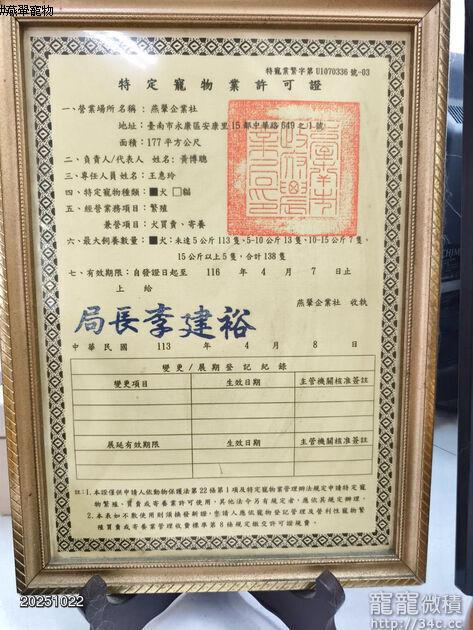 #燕翠寵物
特寵業繁字第 U1070336 號-03
特定寵物業許可證
一、營業場所名稱：燕肇企業社
地址：臺南市永康區安康里15鄰中華路649之1號
面積：177平方公尺
二、負責人/代表人 姓名：黃博聰
三、專任人員姓名：王惠玲
四、特定寵物種類：■犬 □貓
五、經營業務項目：繁殖
兼營項目：犬買賣、寄養
六、最大飼養數量：■犬：未達5公斤113隻、5-10公斤13隻、10-15公斤7隻、
15公斤以上5隻，合計138隻
七、有效期限：自發證日起至 116 年 4 月 7 日止
上 給
燕肇企業社 收執
局長李建裕
中華民國 113 年 4 月 8 日
變更/展期登記紀錄
變更項目 生效日期 主管機關核准簽註
展延有效期限 生效日期 主管機關核准簽註
註：1.本證僅供申請人依動物保護法第22條第1項及特定寵物業管理辦法規定申請特定
寵物繁殖、買賣或寄養許可使用，其他法令另有規定者，應依其規定辦理。
2.本表如不敷使用則須換發新證，您請人應依寵物登記管理及營利性寵物繁
殖買賣或寄養業管理收費標準第8條規定繳交許可證規費。
20251022
龍龍微積
http://34c.cc